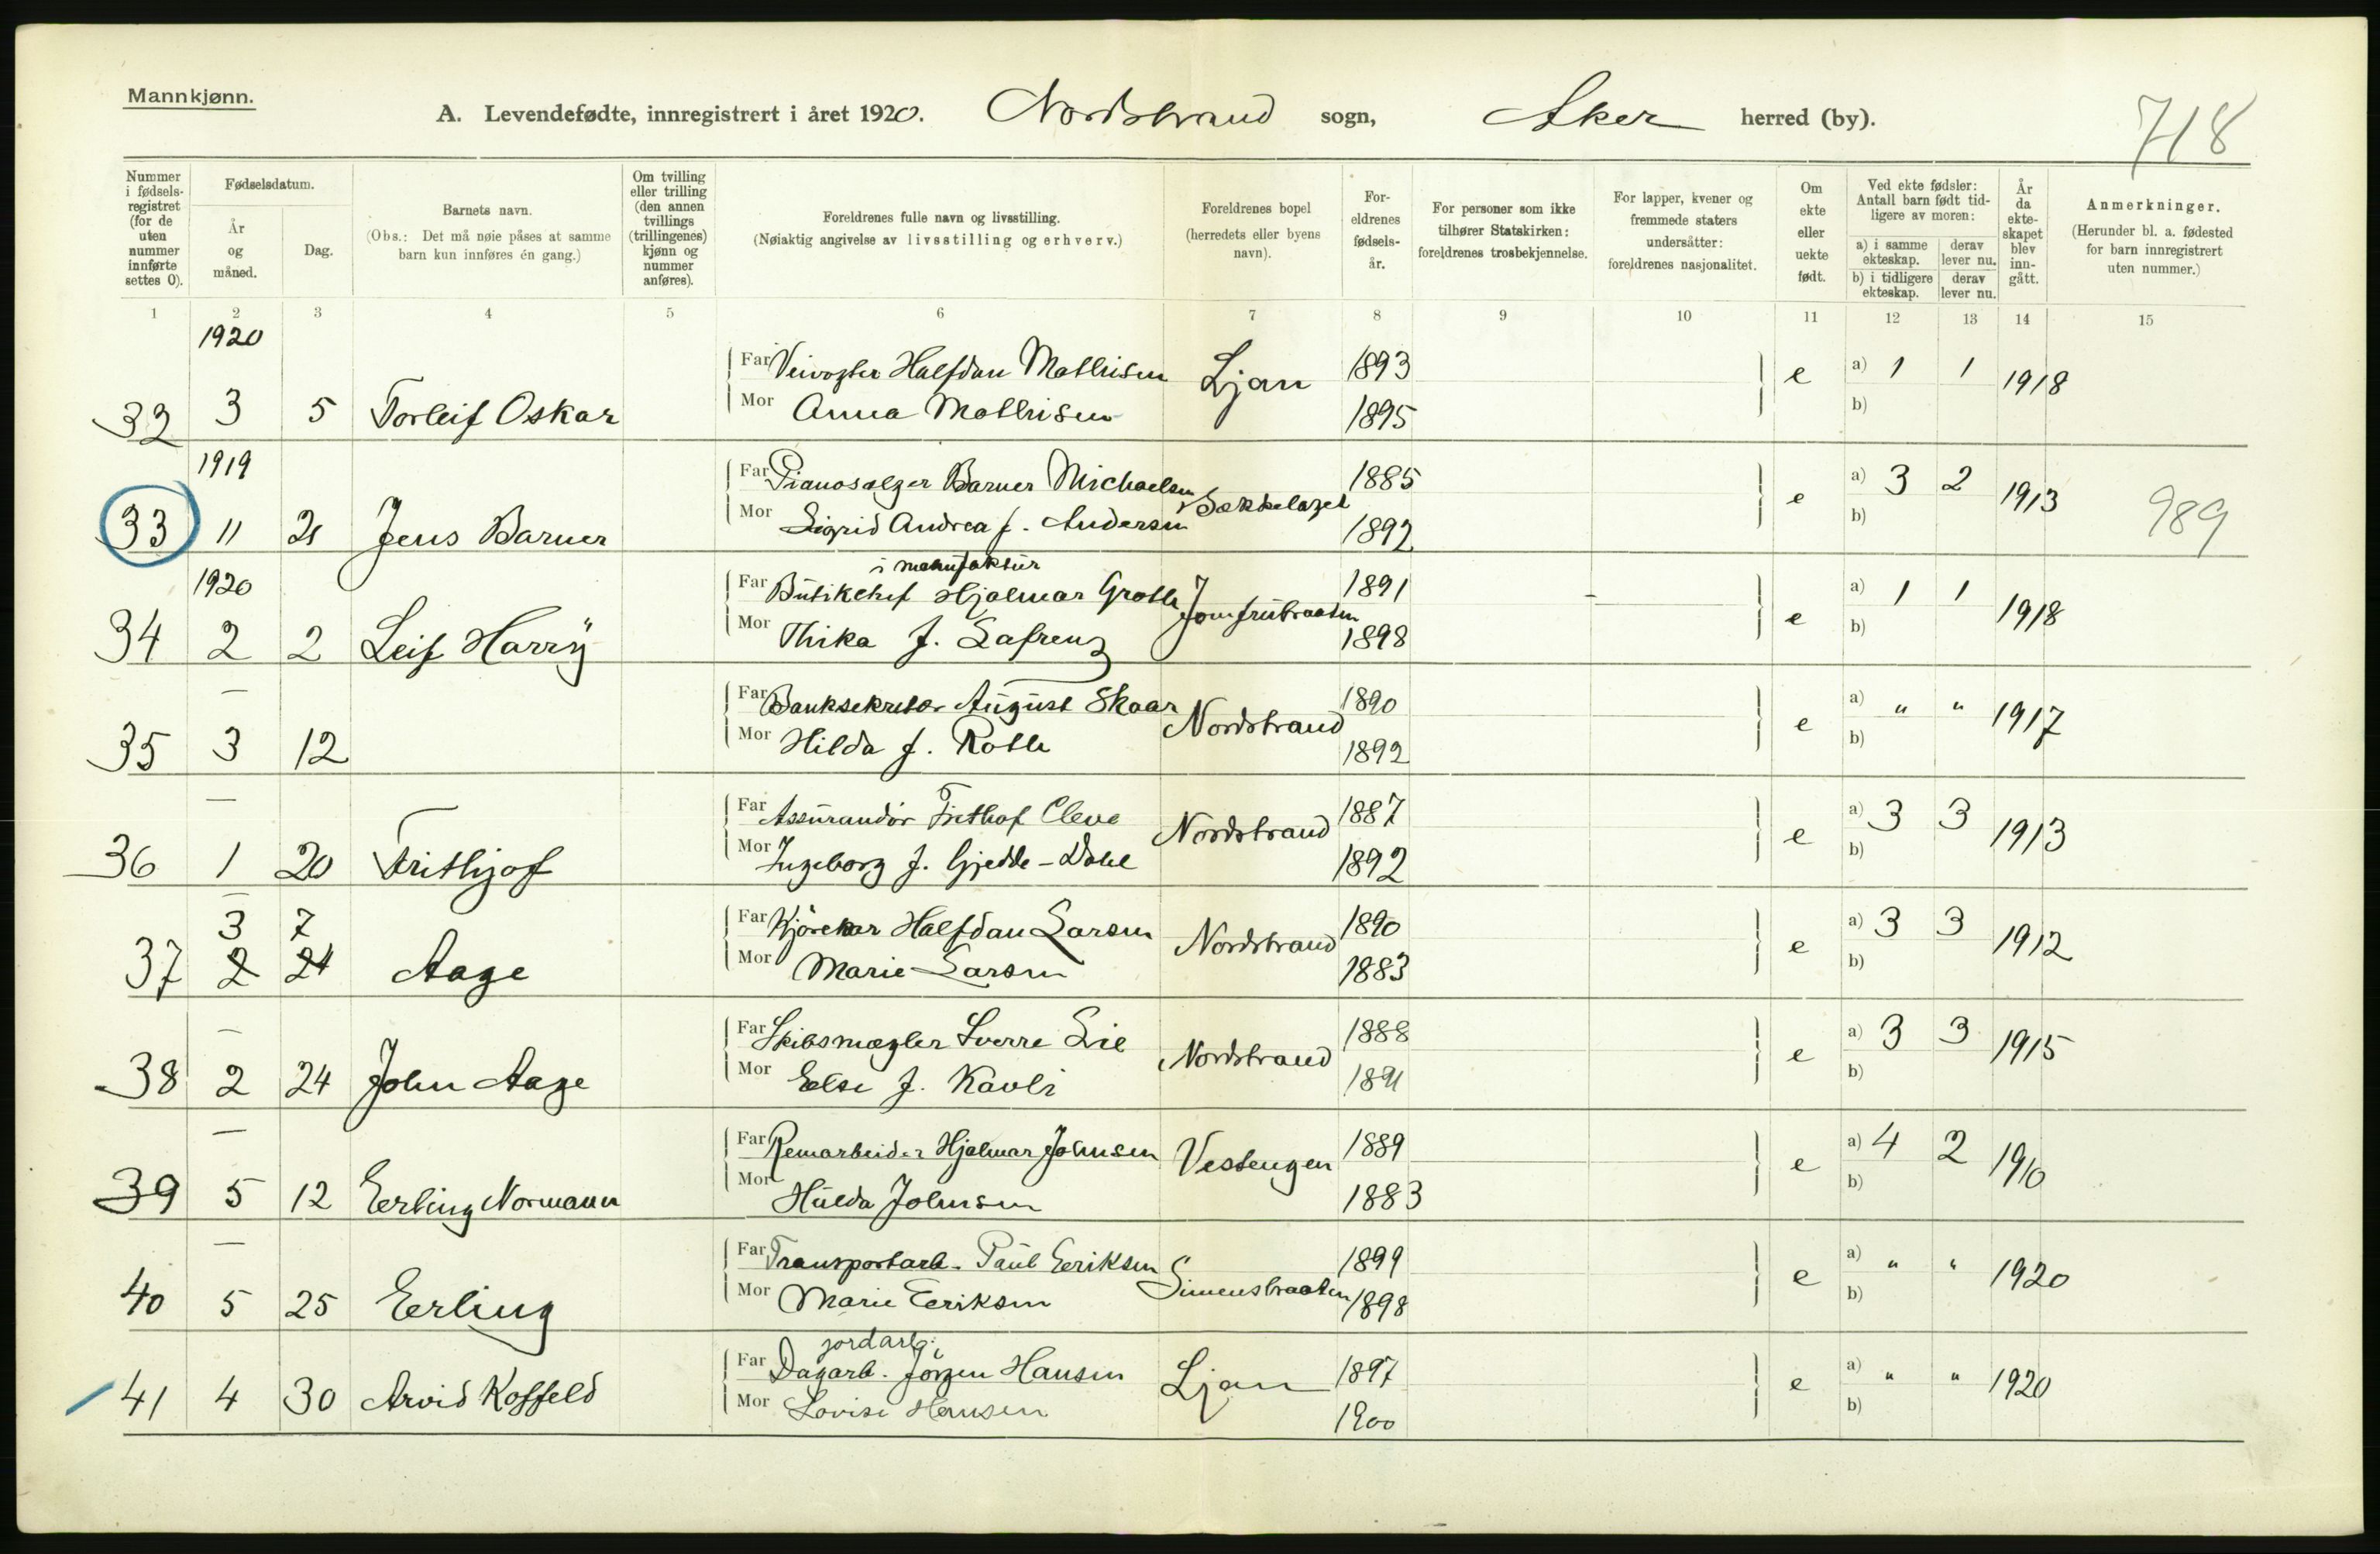 Mannkjønn.
A. Levendefødte, innregistrert i året 1920. Nordstrand sogn, Aker herred (by).
718
Nummer i fødsels-registret (for de uten nummer innførte settes 0).
Fødselsdatum.
År og måned.
Dag.
Barnets navn.
(Obs.: Det må nøie påses at samme barn kun innføres én gang.)
Om tvilling eller trilling (den annen tvillings (trillingenes) kjønn og nummer anføres).
Foreldrenes fulle navn og livsstilling.
(Nøiaktig angivelse av livsstilling og erhverv.)
Foreldrenes bopel (herredets eller byens navn).
For-eldrenes fødsels-år.
For personer som ikke tilhører Statskirken: foreldrenes trosbekjennelse.
For lapper, kvener og fremmede staters undersåtter: foreldrenes nasjonalitet.
Om ekte eller uekte født.
Ved ekte fødsler: Antall barn født tid-ligere av moren:
a) i samme ekteskap.
derav lever nu.
b) i tidligere ekteskap.
derav lever nu.
År da ekte-skapet blev inn-gått.
Anmerkninger.
(Herunder bl. a. fødested for barn innregistrert uten nummer.)
1 2 3 4 5 6 7 8 9 10 11 12 13 14 15
1920
Far Veivogter Halfdan Mathisen Ljan 1893 e a) 1 1 1918
32 3 5 Torleif Oskar Mor Anna Mathisen 1895 b)
1919
Far Pianosælger Barner Michaelsen Bækkelaget 1885 e a) 3 2 1913 989
33 11 21 Jens Barner Mor Sigrid Andrea f. Andersen 1892 b)
1920
i manufaktur
Far Butikchef Hjalmar Grothe Jomfrubraaten 1891 e a) 1 1 1918
34 2 2 Leif Harry Mor Thika f. Lafrenz 1898 b)
—
Far Banksekretær August Skaar Nordstrand 1890 e a) " " 1917
35 3 12 Mor Hilda f. Rothe 1892 b)
—
Far Assurandør Frithof Cleve Nordstrand 1887 e a) 3 3 1913
36 1 20 Frithjof Mor Ingeborg f. Gjedde-Dahl 1892 b)
—
3 7 Far Kjørekar Halfdan Larsen Nordstrand 1890 e a) 3 3 1912
37 2 24 Aage Mor Marie Larsen 1883 b)
—
Far Skibsmægler Sverre Lie Nordstrand 1888 e a) 3 3 1915
38 2 24 John Aage Mor Else f. Kavli 1891 b)
—
Far Remarbeider Hjalmar Johnsen Vestengen 1889 e a) 4 2 1910
39 5 12 Erling Normann Mor Hulda Johnsen 1883 b)
—
Far Transportarb. Paul Eriksen Simensbraaten 1899 e a) " " 1920
40 5 25 Erling Mor Marie Eriksen 1898 b)
jordarb.
Far Dagarb. Jørgen Hansen Ljan 1897 e a) " " 1920
41 4 30 Arvid Koffeld Mor Lovise Hansen 1900 b)